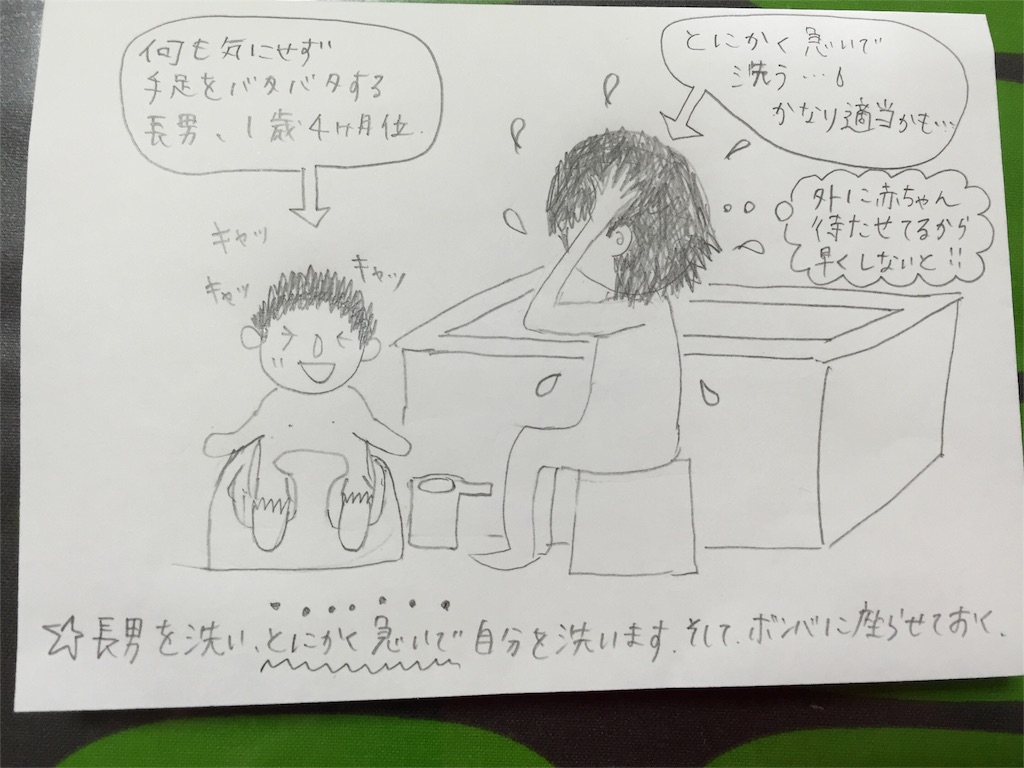 何も気にせず
手足をバタバタする
長男、1歳4ヶ月位.
とにかく急いで
洗う…
かなり適当かも…
外に赤ちゃん
待たせてるから
早くしないと!!
キャッ
キャッ
キャッ
☆長男を洗い、とにかく急いで自分を洗います.そして、ボンバに座らせておく.